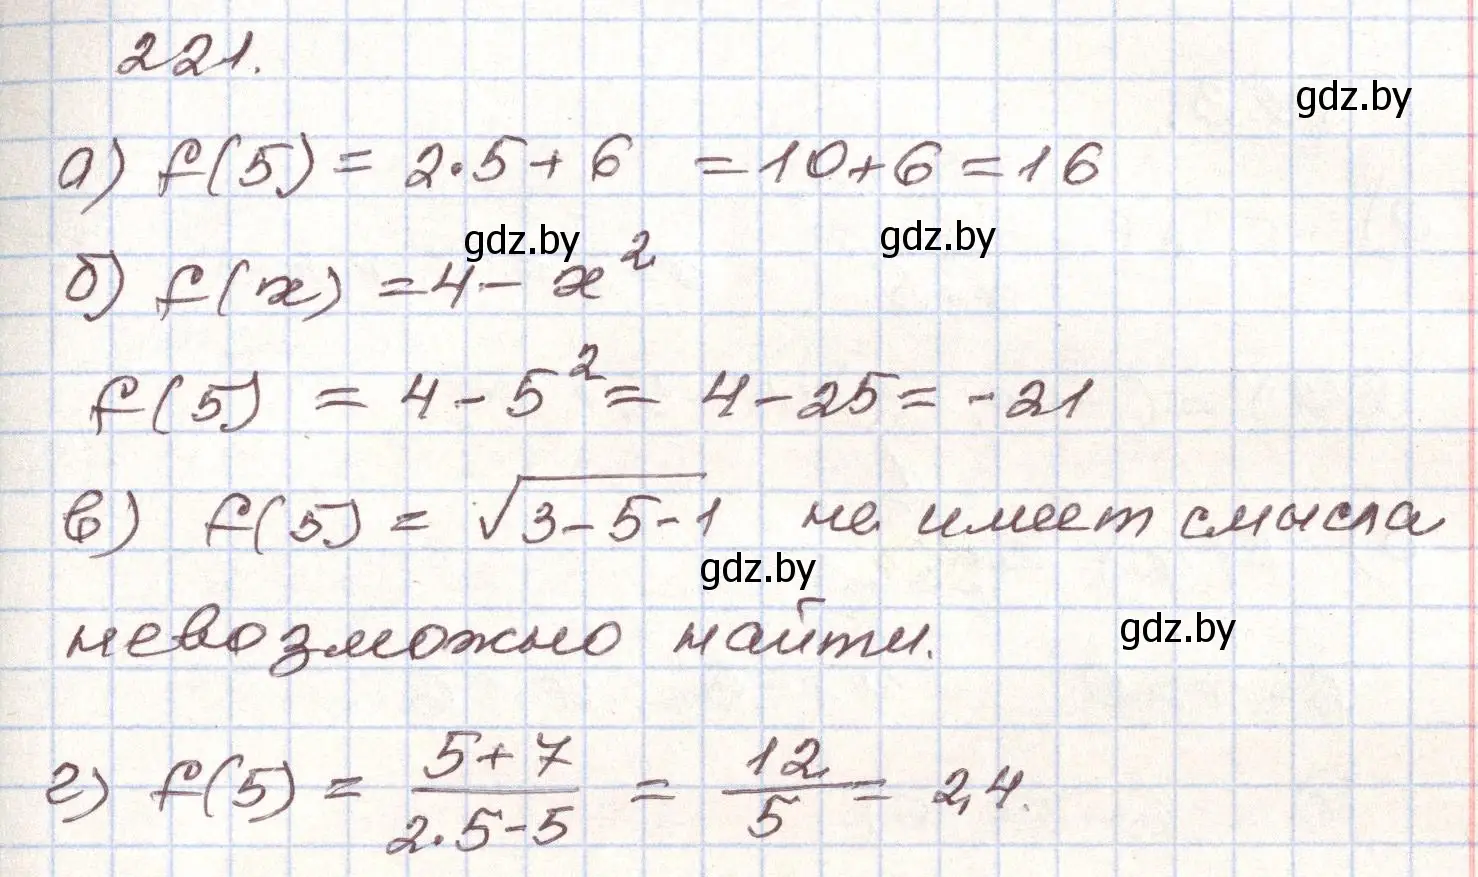 221.
gdz.by
а) f(5) = 2·5+6 =10+6=16
gdz.by gdz.by
б) f(x) =4- x²
f(5) = 4-5²= 4-25= -21
в) f(5) = √3-5-1 не имеет смысла
gdz.by
невозможно найти.
gdz.by
г) f(5) = (5+7)/(2·5-5) = 12/5 = 2,4.